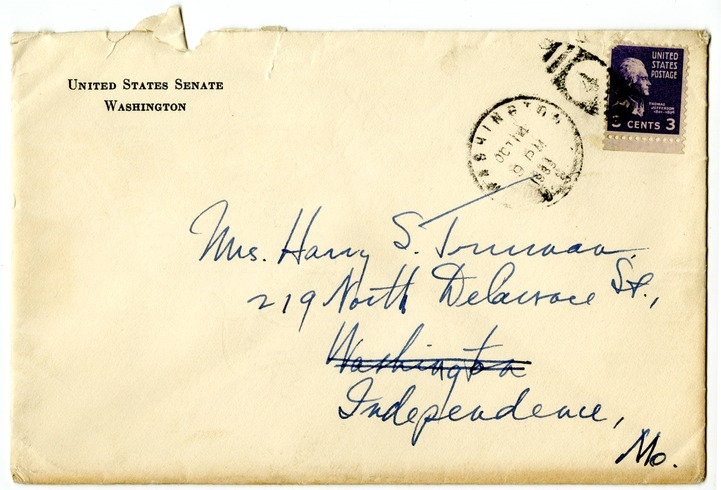 UNITED STATES SENATE
WASHINGTON
UNITED
STATES
POSTAGE
THOMAS
JEFFERSON
3 CENTS 3
WASHINGTON
OCT 14
PM
1939
Mrs. Harry S. Truman
219 North Delaware St.,
Washington
Independence,
Mo.